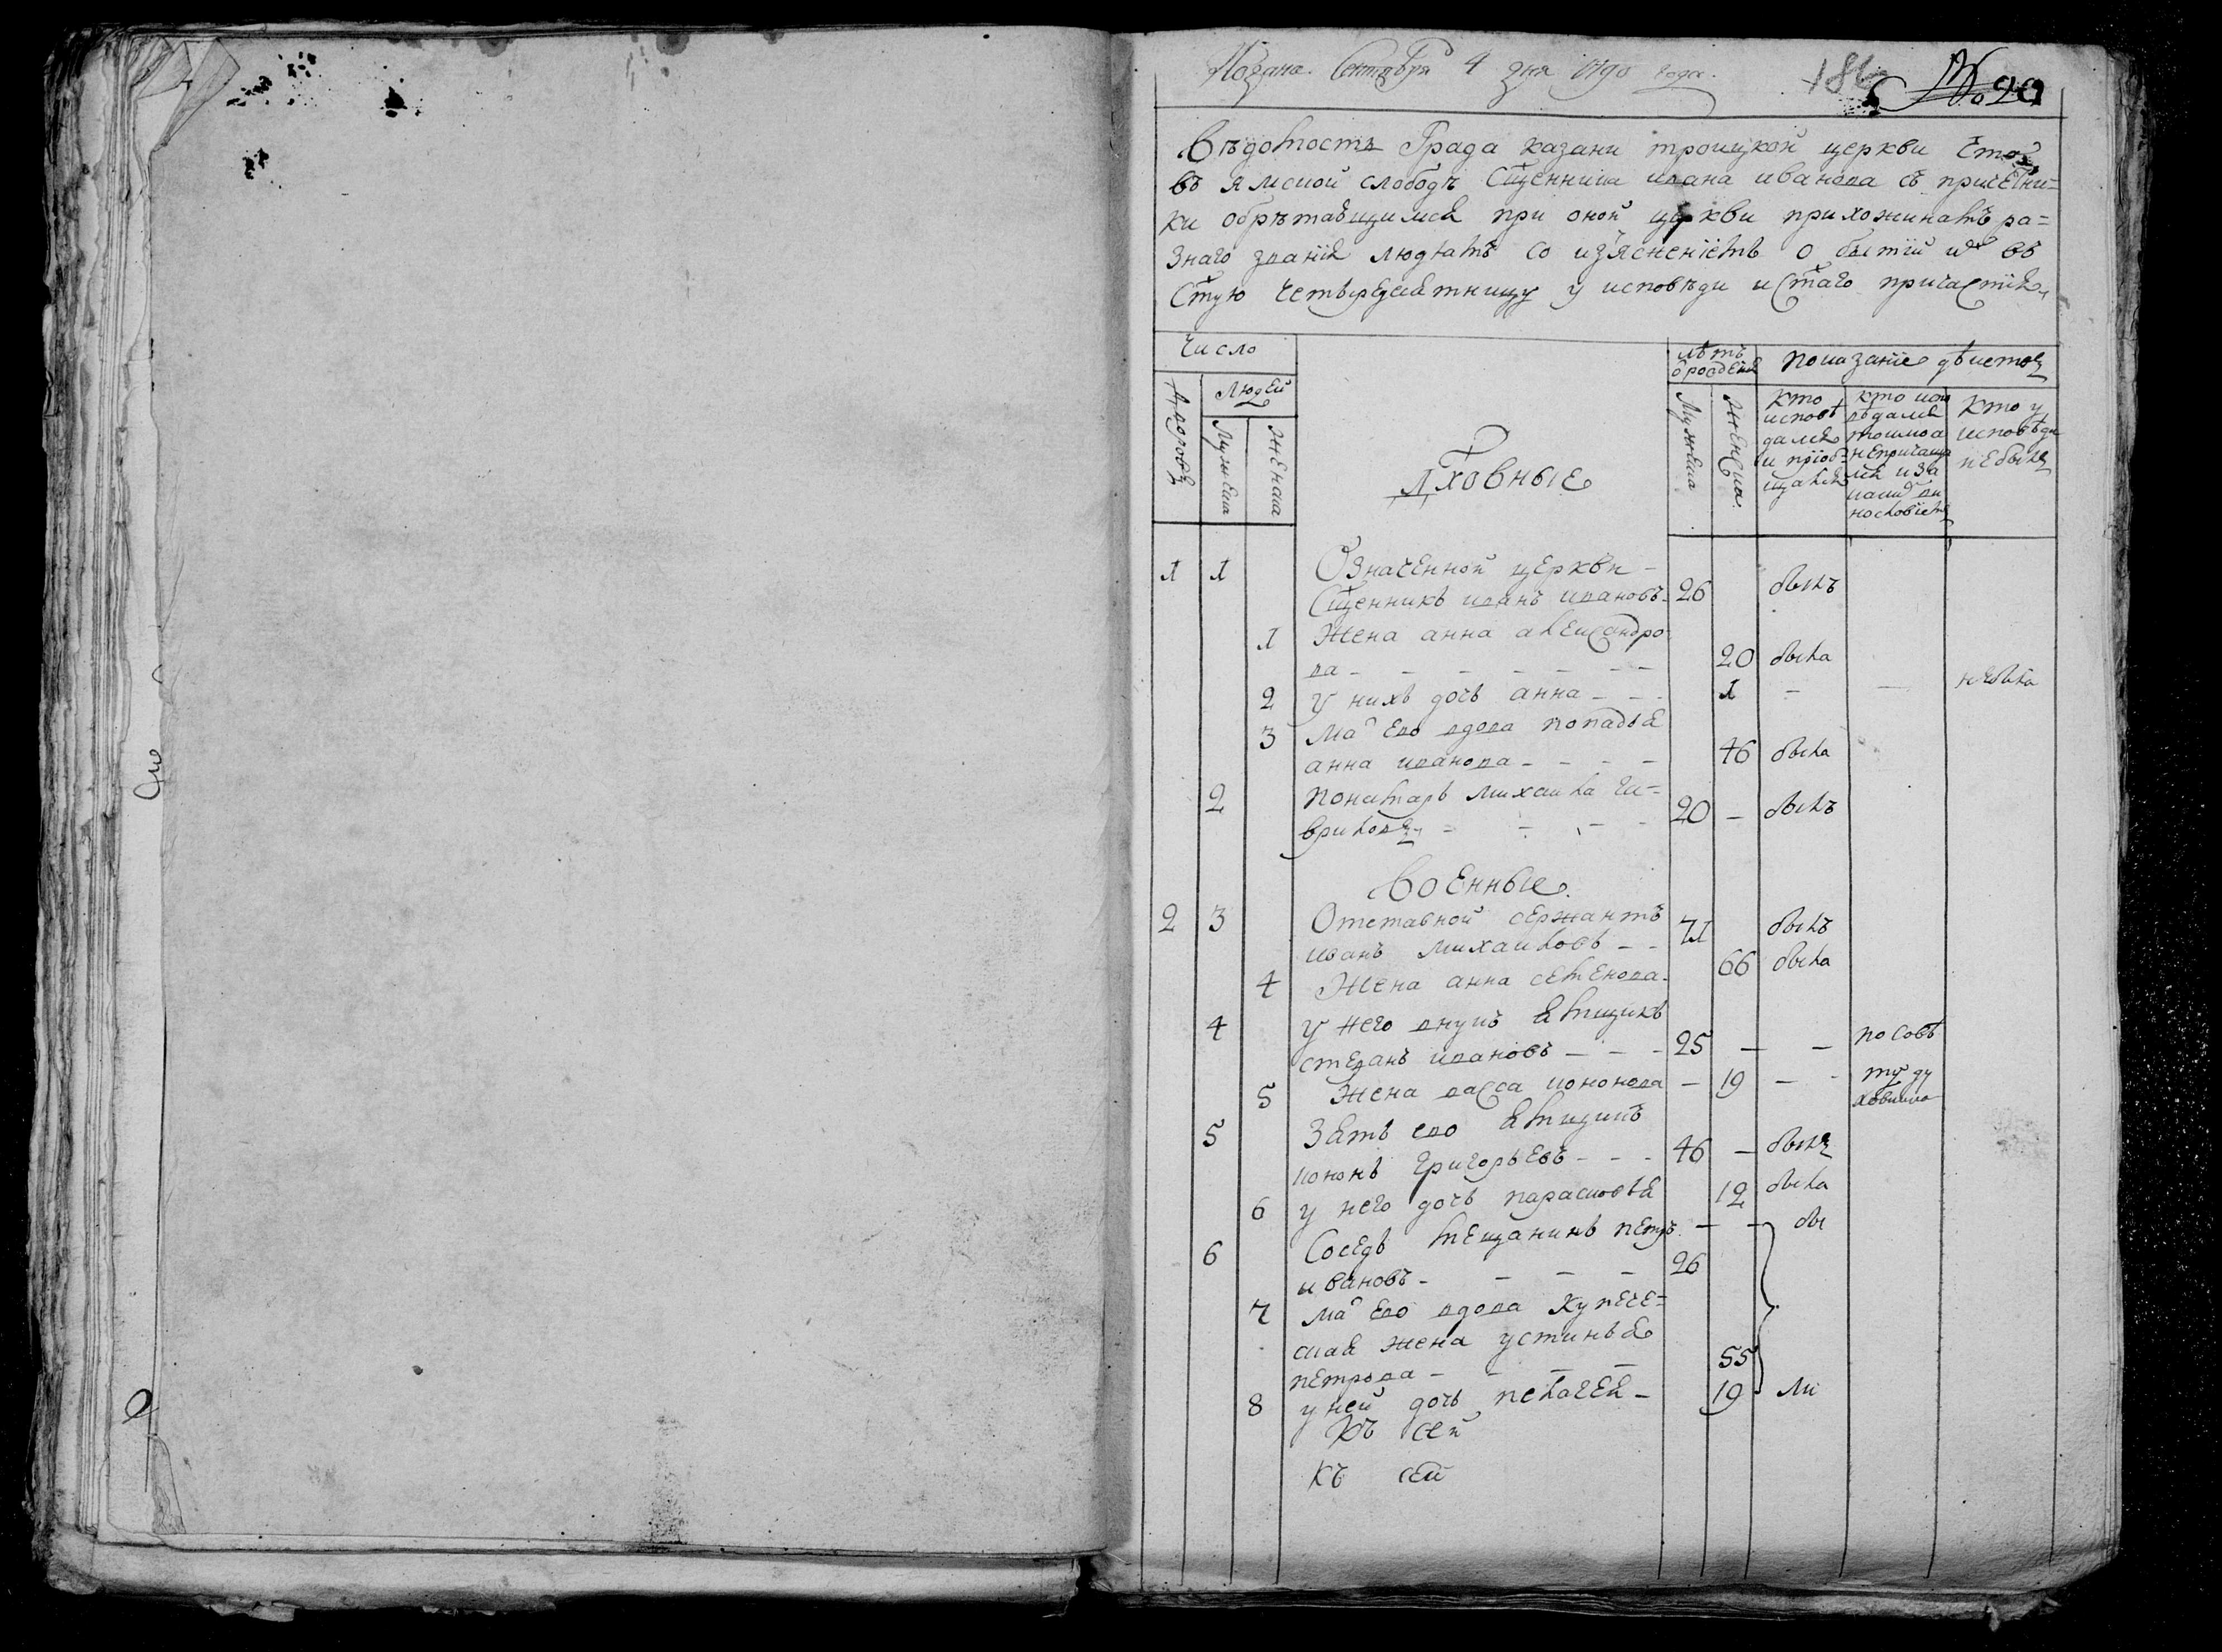 Подана Сентября 4 дня 1790 года.
186
№ 20
Вѣдомость Града казани троицкой церкви что
въ ямской слободѣ Сщенника ивана иванова съ причетни=
ки обрѣтающимся при оной церкви прихожанамъ ра=
знаго званія людямъ со изъясненіемъ о бытіи ихъ въ
Стую четыредесятницу у исповѣди и стаго причастія
Число
лѣтъ
показаніе дѣйствъ
Людей
Дворовъ
Мужеска
Женска
Мужеска
Женска
кто
исповѣ
дался
и пріоб
щался
кто испо
вѣдался
токмо а
непричаща
лся и за
какимъ ви
нословіемъ
Кто у
исповѣди
не былъ
Дховные
1 1 Означенной церкви
Сщенникъ иванъ ивановъ 26 былъ
1 Жена анна александро
ва 20 была
2 у нихъ дочь анна 1 не была
3 Мать его вдова попадья
анна иванова 46 была
2 понамарь михаила га=
вриловъ 20 былъ
Военные
2 3 Отставной сержантъ 71 былъ
иванъ михаиловъ
4 Жена анна семенова 66 была
4 у него внукъ ямщикъ
степанъ ивановъ 25 по совѣ
5 Жена васса кононова 19 ту ду
ховника
5 Зять его ямщикъ
кононъ григорьевъ 46 былъ
6 у него дочь парасковья 12 была
6 Сосѣдъ мещанинъ петръ бы
ивановъ 26
7 мать его вдова купече=
ская жена устинья
петрова 55
8 у ней дочь пелагея 19 ли
Къ сей
Къ сей